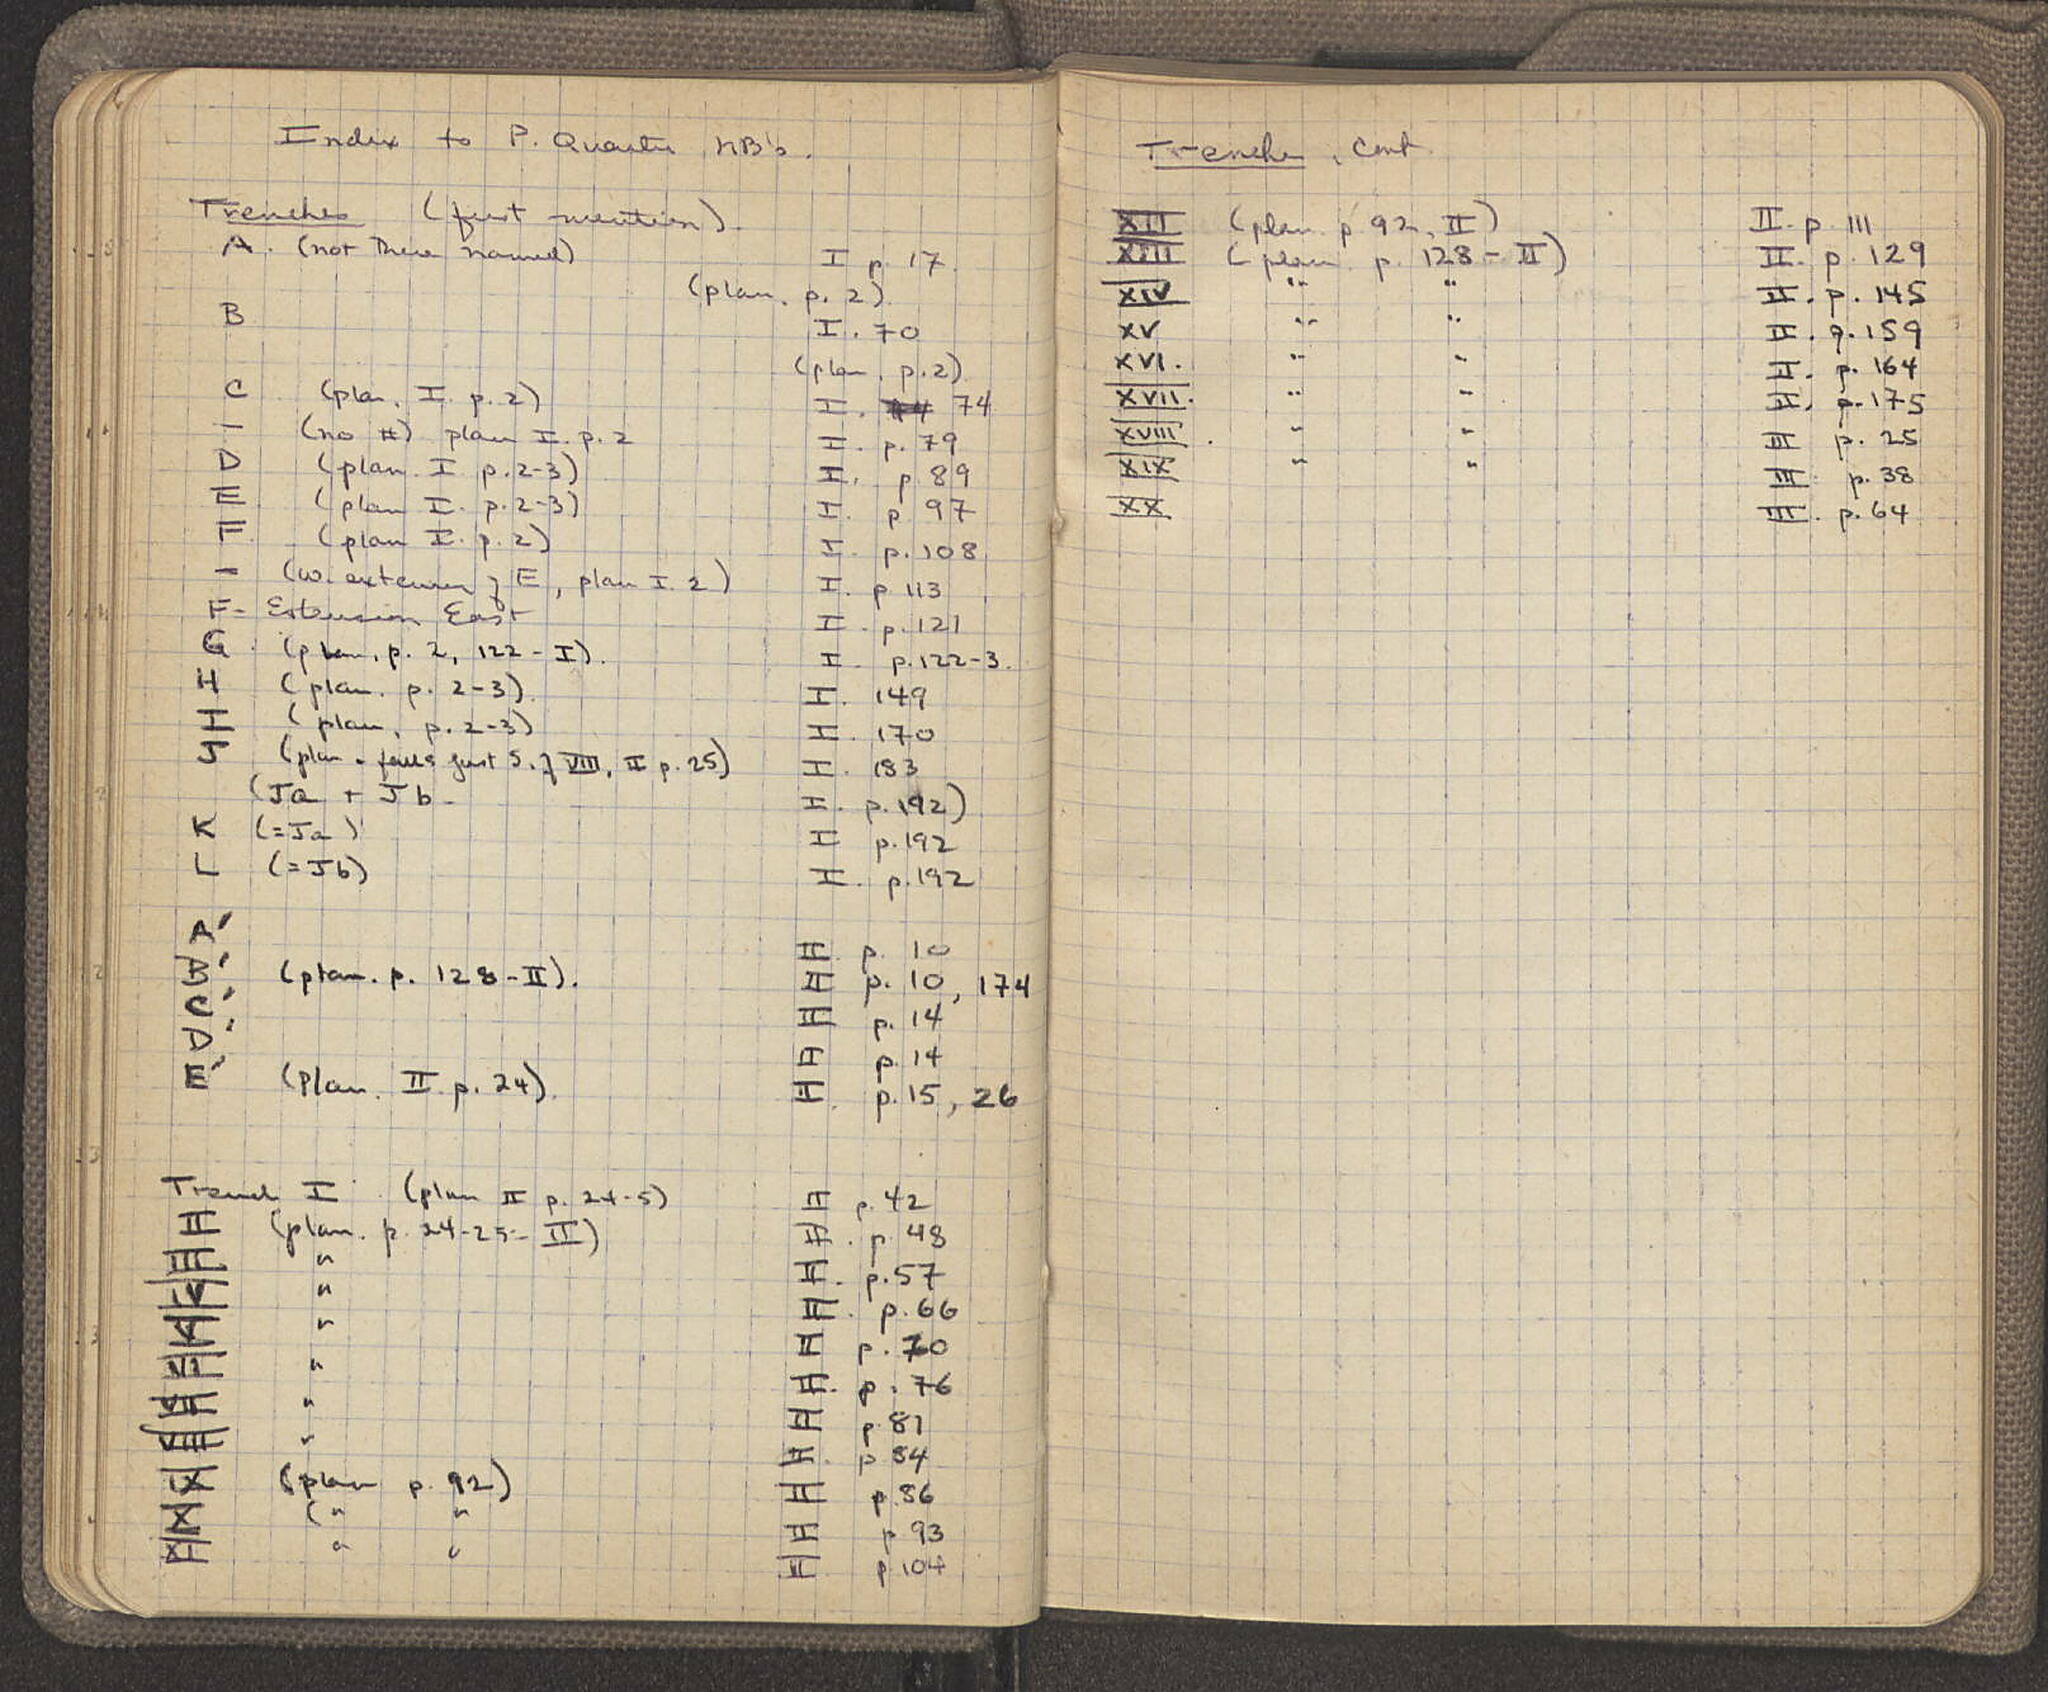 Index to P. Quarter NB's.
Trenches (first mention).
A. (not there named) I p. 17.
(plan. p. 2)
B I. 70
(plan. p. 2)
C (plan. I. p. 2) I. 74
— (no #) plan I. p. 2 I. p. 79
D (plan. I. p. 2-3) I. p. 89
E (plan I. p. 2-3) I. p. 97
F. (plan I. p. 2) I. p. 108
— (W. extension of E, plan I. 2) I. p 113
F- Extension East I. p. 121
G. (plan. p. 2, 122 - I). I. p. 122-3.
H (plan. p. 2-3). I. 149
I (plan. p. 2-3) I. 170
J (plan - falls just S. of VIII, II p. 25) I. 183
(Ja + Jb - I. p. 192)
K (= Ja) I p. 192
L (= Jb) I. p. 192
A' II p. 10
B' (plan. p. 128 - II). II p. 10, 174
C' II p. 14
D' II p. 14
E' (Plan. II p. 24). II. p. 15, 26
Trench I (plan II p. 24-5) II p. 42
II (plan. p. 24-25 - II) II. p. 48
III " II. p. 57
IV " II. p. 66
V " II p. 70
VI " II. p. 76
VII " II p. 81
VIII " II. p 84
IX (plan p. 92) II p. 86
X (" " II p 93
XI " " II p 104
Trenches, cont
XII (plan p. 92, II) II. p. 111
XIII (plan p. 128 - II) II. p. 129
XIV " " II. p. 145
XV " " II. p. 159
XVI. " " II. p. 164
XVII. " " II. p. 175
XVIII. " " III p. 25
XIX " " III. p. 38
XX III. p. 64